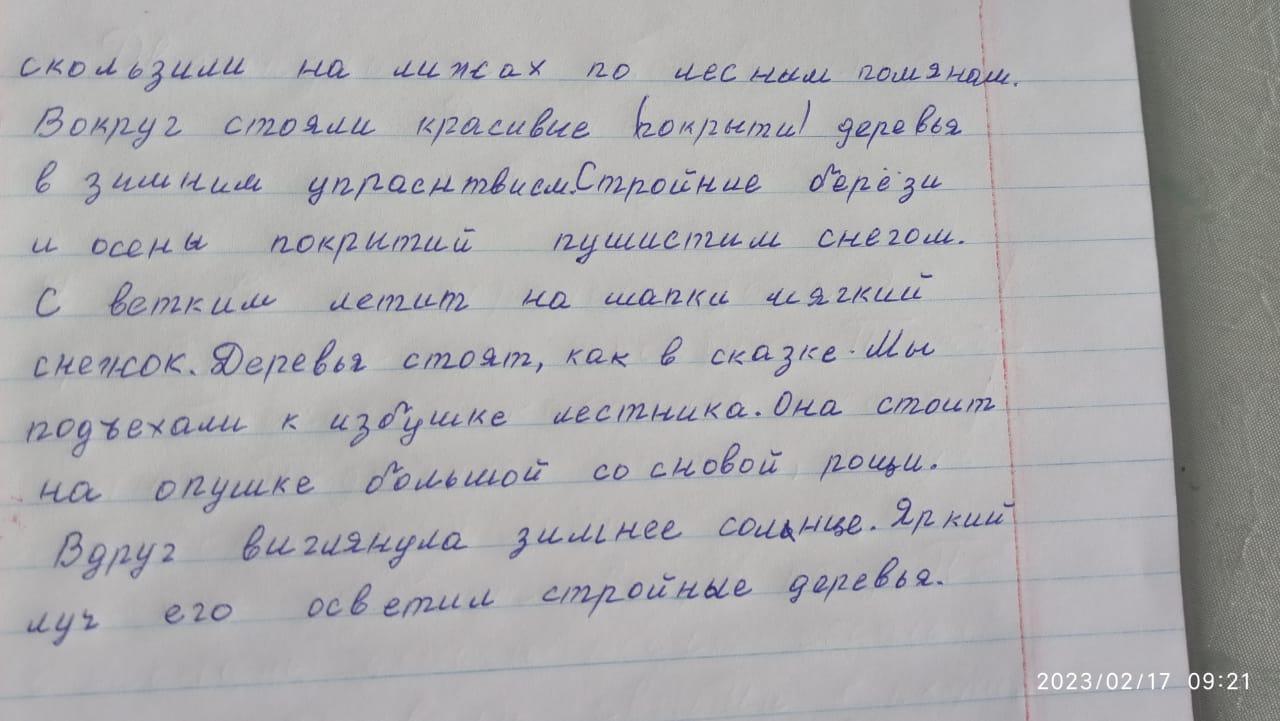 скользили на лижах по лесним помянам.
Вокруг стояли красивие (покрыти) деревья
в зимним упраснтвием. Стройние берёзи
и осены покритий пушистим снегом.
С ветким летит на шапки мягкий
снежок. Деревья стоят, как в сказке. Мы
подъехали к избушке лестника. Она стоит
на опушке большой сосновой рощи.
Вдруг виглянула зимнее солнце. Яркий
луч его осветил стройные деревья.
2023/02/17 09:21